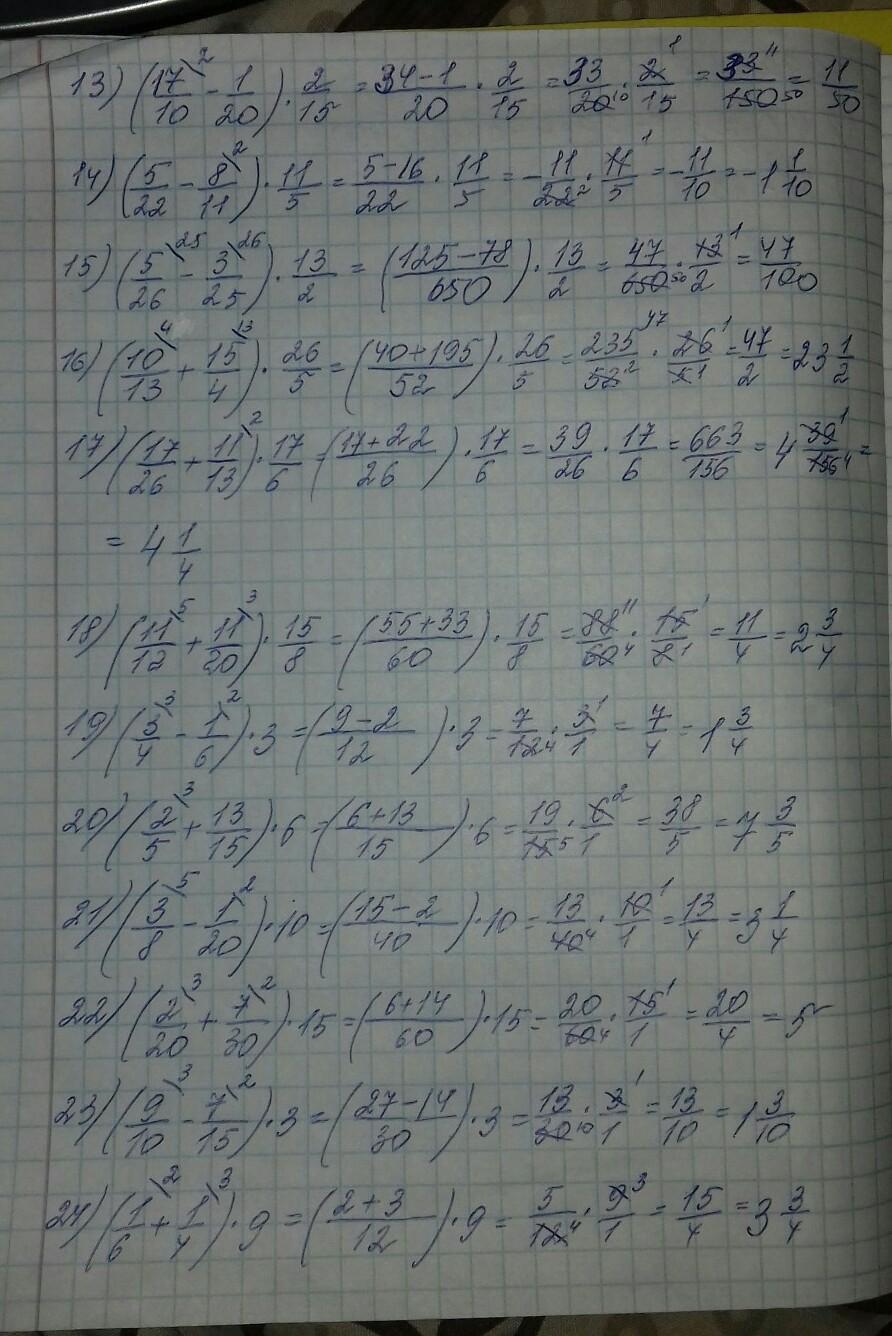 13) (17/10 \2 - 1/20) · 2/15 = (34-1)/20 · 2/15 = 33/20 10 · 2/15 1 = 33/150 11 50 = 11/50
14) (5/22 - 8/11 \2) · 11/5 = (5-16)/22 · 11/5 = -11/22 2 · 11/5 1 = -11/10 = -1 1/10
15) (5/26 \25 - 3/25 \26) · 13/2 = ((125-78)/650) · 13/2 = 47/650 50 · 13/2 1 = 47/100
16) (10/13 \4 + 15/4 \13) · 26/5 = ((40+195)/52) · 26/5 = 235/52 47 2 · 26/5 1 1 = 47/2 = 23 1/2
17) (17/26 + 11/13 \2) · 17/6 = ((17+22)/26) · 17/6 = 39/26 · 17/6 = 663/156 = 4 39/156 1 4 =
= 4 1/4
18) (11/12 \5 + 11/20 \3) · 15/8 = ((55+33)/60) · 15/8 = 88/60 11 4 · 15/8 1 1 = 11/4 = 2 3/4
19) (3/4 \3 - 1/6 \2) · 3 = ((9-2)/12) · 3 = 7/12 4 · 3/1 1 = 7/4 = 1 3/4
20) (2/5 \3 + 13/15) · 6 = ((6+13)/15) · 6 = 19/15 5 · 6/1 2 = 38/5 = 7 3/5
21) (3/8 \5 - 1/20 \2) · 10 = ((15-2)/40) · 10 = 13/40 4 · 10/1 1 = 13/4 = 3 1/4
22) (2/20 \3 + 7/30 \2) · 15 = ((6+14)/60) · 15 = 20/60 4 · 15/1 1 = 20/4 = 5
23) (9/10 \3 - 7/15 \2) · 3 = ((27-14)/30) · 3 = 13/30 10 · 3/1 1 = 13/10 = 1 3/10
24) (1/6 \2 + 1/4 \3) · 9 = ((2+3)/12) · 9 = 5/12 4 · 9/1 3 = 15/4 = 3 3/4